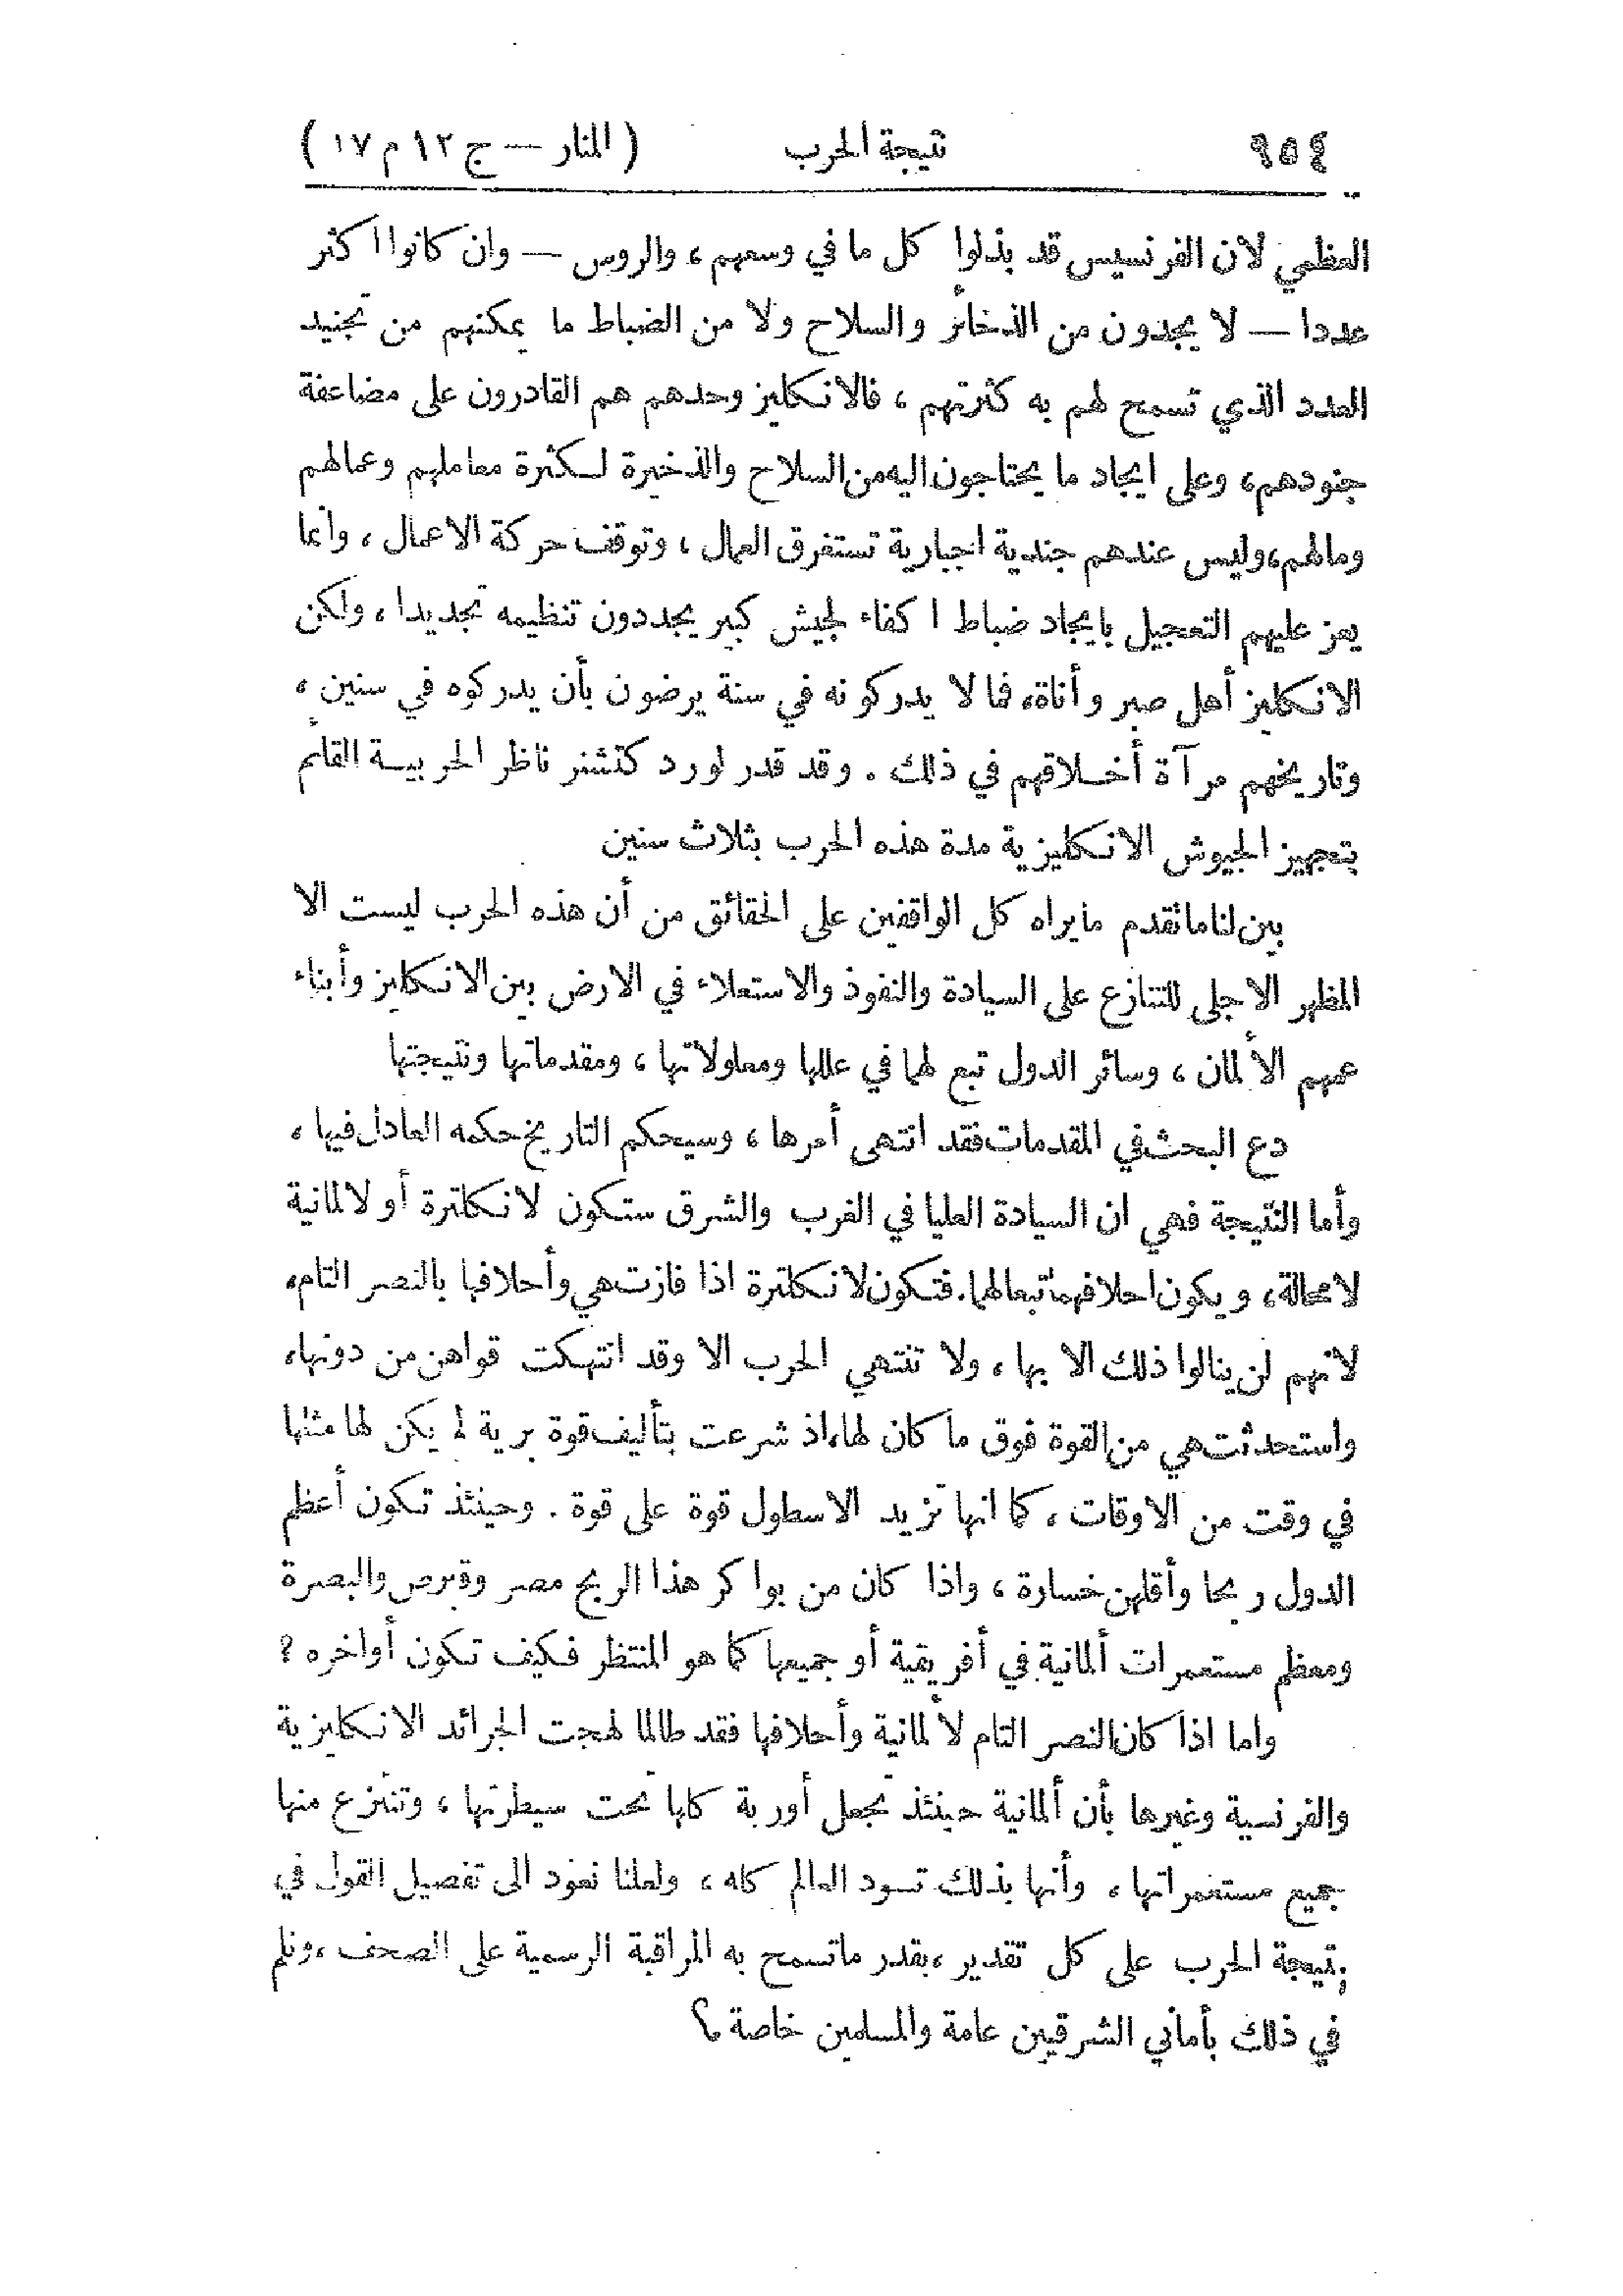 ٩٥٤ نتيجة الحرب (المنار — ج ١٢ م ١٧)
العظمى لان الفرنسيس قد بذلوا كل ما في وسعهم، والروس — وان كانوا اكثر
عددا — لا يجدون من الذخائر والسلاح ولا من الضباط ما يمكنهم من تجنيد
العدد الذي تسمح لهم به كثرتهم، فالانكليز وحدهم هم القادرون على مضاعفة
جنودهم، وعلى ايجاد ما يحتاجون اليه من السلاح والذخيرة لكثرة معاملهم وعمالهم
ومالهم، وليس عندهم جندية اجبارية تستغرق العمال، وتوقف حركة الاعمال، وانما
يعز عليهم التعجيل بايجاد ضباط اكفاء لجيش كبير يجددون تنظيمه تجديدا، ولكن
الانكليز أهل صبر وأناة، فما لا يدركونه في سنة يرضون بأن يدركوه في سنين،
وتاريخهم مرآة أخلاقهم في ذلك. وقد قدر لورد كتشنر ناظر الحربية القائم
بتجهيز الجيوش الانكليزية مدة هذه الحرب بثلاث سنين
بين لنا ما تقدم ما يراه كل الواقفين على الحقائق من أن هذه الحرب ليست الا
المظهر الاجلى للتنازع على السيادة والنفوذ والاستعلاء في الارض بين الانكليز وأبناء
عمهم الألمان، وسائر الدول تبع لهما في عللها ومعلولاتها، ومقدماتها ونتيجتها
دع البحث في المقدمات فقد انتهى أمرها، وسيحكم التاريخ حكمه العادل فيها،
وأما النتيجة فهي ان السيادة العليا في الغرب والشرق ستكون لانكلترة أو لالمانية
لا محالة، ويكون احلافهما تبعا لهما. فتكون لانكلترة اذا فازت هي وأحلافها بالنصر التام،
لانهم لن ينالوا ذلك الا بها، ولا تنتهي الحرب الا وقد انتهكت قواهن من دونها،
واستحدثت هي من القوة فوق ما كان لها، اذ شرعت بتأليف قوة برية لم يكن لها مثلها
في وقت من الاوقات، كما انها تزيد الاسطول قوة على قوة. وحينئذ تكون أعظم
الدول ربحا وأقلهن خسارة، واذا كان من بواكر هذا الربح مصر وقبرص والبصرة
ومعظم مستعمرات ألمانية في أفريقية أو جميعها كما هو المنتظر فكيف تكون أواخره ؟
واما اذا كان النصر التام لألمانية وأحلافها فقد طالما لهجت الجرائد الانكليزية
والفرنسية وغيرها بأن ألمانية حينئذ تجعل أوربة كلها تحت سيطرتها، وتنتزع منها
جميع مستعمراتها، وأنها بذلك تسود العالم كله، ولعلنا نعود الى تفصيل القول في
نتيجة الحرب على كل تقدير، بقدر ما تسمح به المراقبة الرسمية على الصحف، ونلم
في ذلك بأماني الشرقيين عامة والمسلمين خاصة